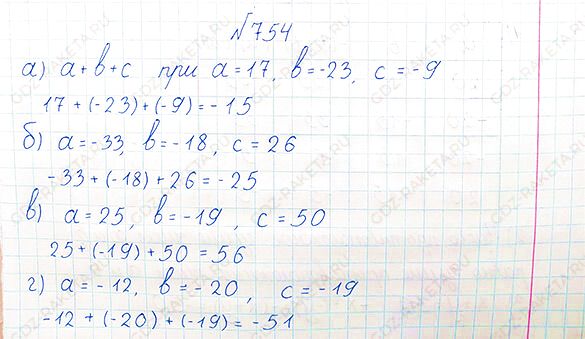 №754
а) a+b+c при a=17, b=-23, c=-9
17+(-23)+(-9)=-15
б) a=-33, b=-18, c=26
-33+(-18)+26=-25
в) a=25, b=-19, c=50
25+(-19)+50=56
г) a=-12, b=-20, c=-19
-12+(-20)+(-19)=-51
GDZ-RAKETA.RU